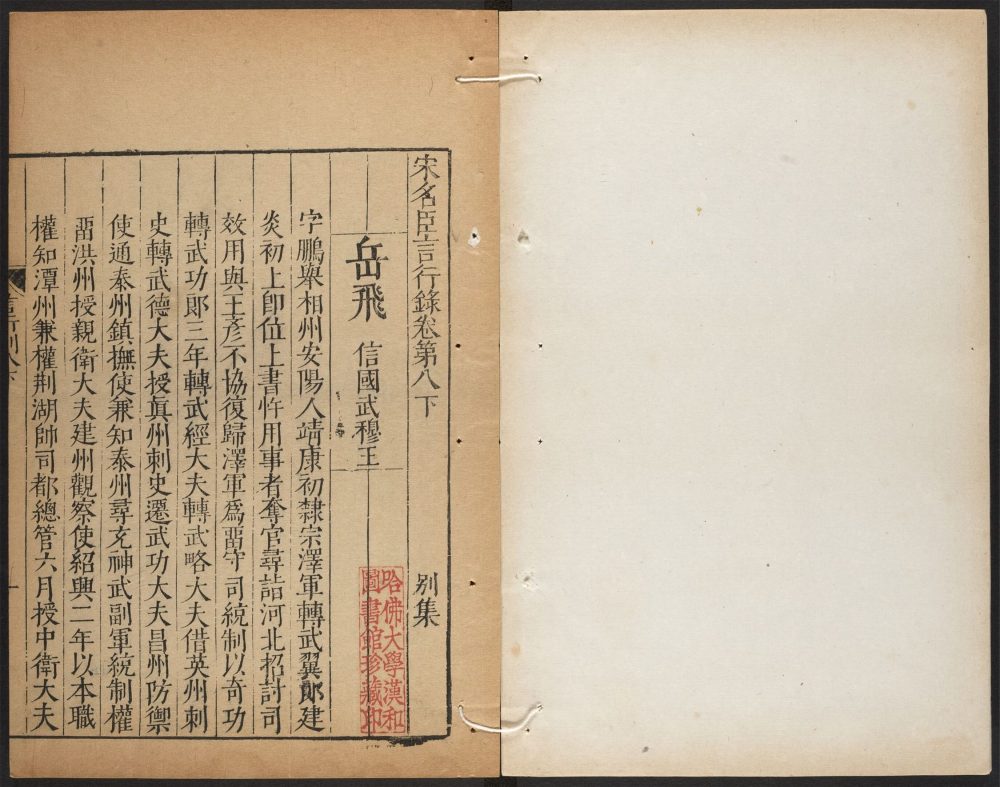 宋名臣言行錄卷第八下 別集
岳飛 信國武穆王
字鵬舉相州安陽人靖康初隸宗澤軍轉武翼郎建
炎初上卽位上書忤用事者奪官尋詣河北招討司
效用與王彥不協復歸澤軍爲畱守司統制以奇功
轉武功郎三年轉武經大夫轉武略大夫借英州刺
史轉武德大夫授眞州刺史遷武功大夫昌州防禦
使通泰州鎮撫使兼知泰州尋充神武副軍統制權
畱洪州授親衛大夫建州觀察使紹興二年以本職
權知潭州兼權荆湖帥司都總管六月授中衛大夫
哈佛大學漢和
圖書館珍藏印